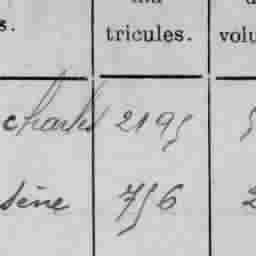 s. tricules. volu
charles 2195 5
sène 756 2